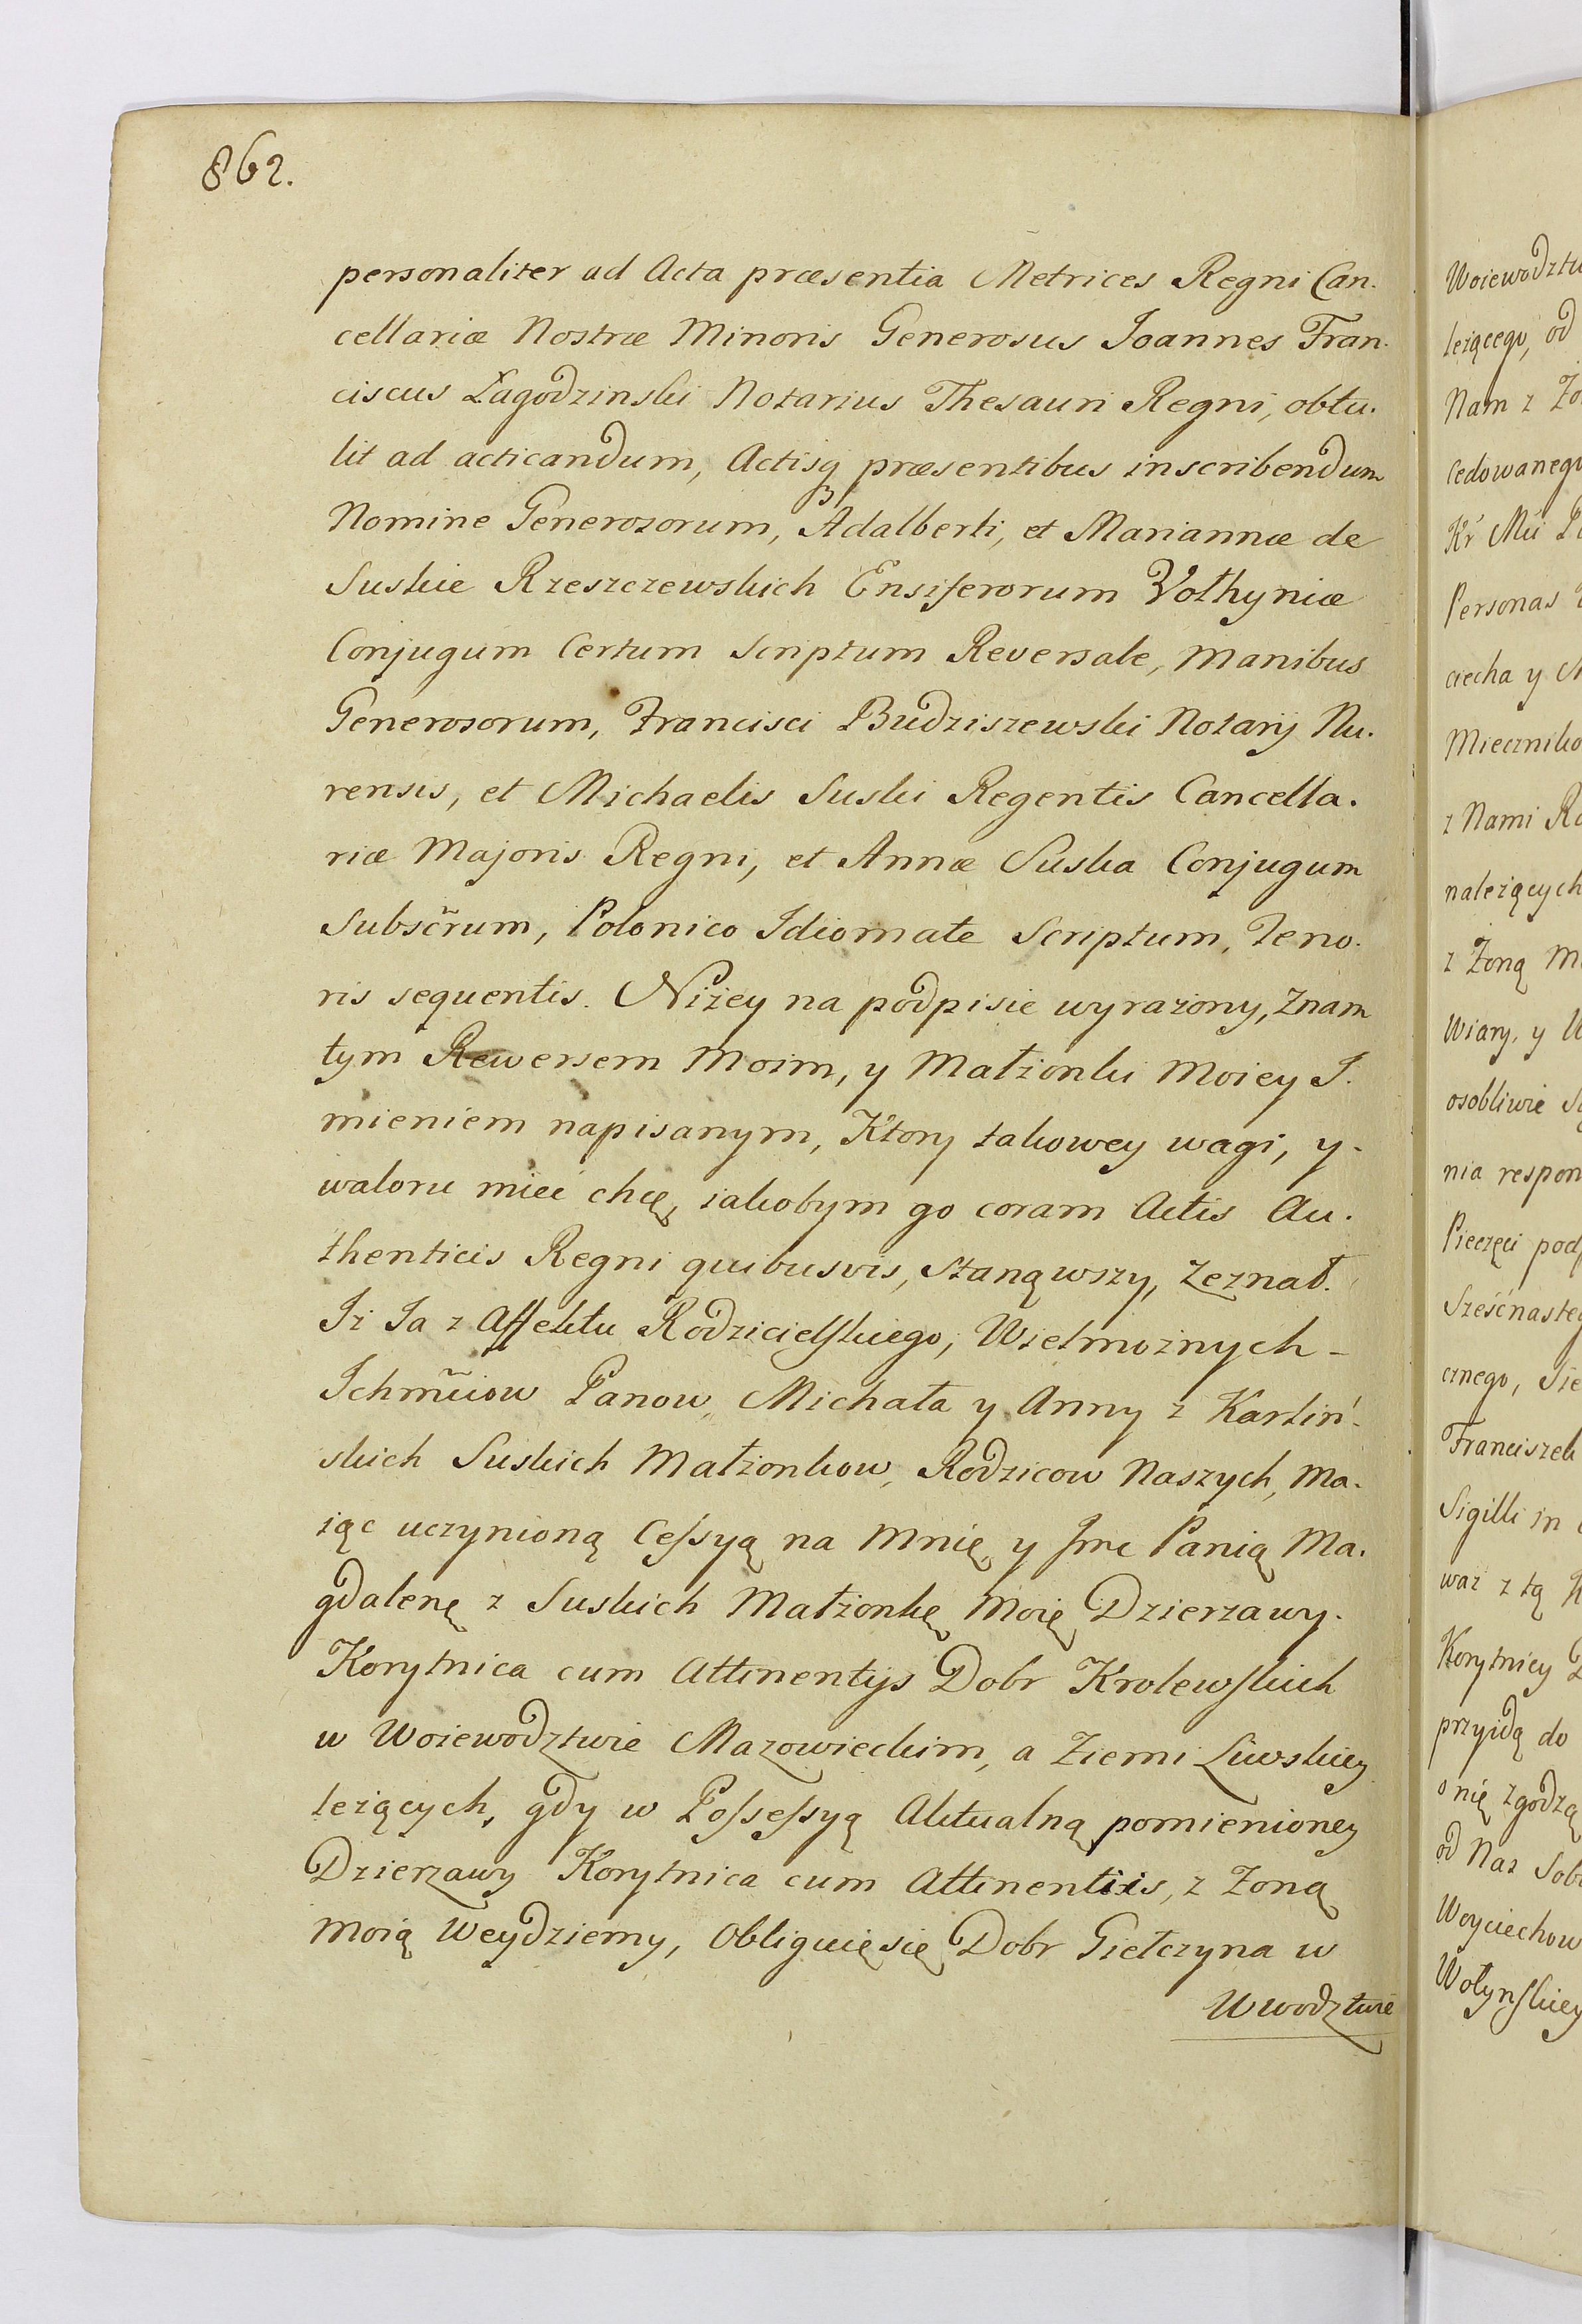 862.
personaliter ad Acta præsentia Metrices Regni Can.
cellariæ Nostræ Minoris Generosus Joannes Fran.
ciscus Łagodzinski Notarius Thesauri Regni, obtu.
lit ad acticandum, Actisq præsentibus inscribendum
Nomine Generosorum, Adalberti, et Mariannæ de
Suskie Rzeszczewskich Ensiferorum Vołhyniæ
Conjugum Certum Scriptum Reversale, Manibus
Generosorum, Francisci Budziszewski Notarij Nu.
rensis, et Michaelis Suski Regentis Cancella.
riæ Majoris Regni, et Annæ Suska Conjugum
Subscr̃rum, Polonico Idiomate Scriptum, Teno.
ris sequentis. Niżey na podpisie wyrażony, Znam
tym Rewersem Moim, y Małżonki Moiey J.
mieniem napisanym, Ktory takowey wagi, y-
waloru mieć chcę, iakobym go coram Actis Au.
thenticis Regni quibusvis, Stanąwszy, Zeznał.
Iż Ia z Affektu Rodzicielskiego, Wielmożnych-
Ichm̃ciow Panow, Michała y Anny z Karliń-
skich Suskich Małżonkow, Rodzicow Naszych, Ma.
iąc uczynioną Cessyą na Mnię, y Jmc Panią Ma.
gdalenę z Suskich Małżonkę Moię Dzierzawy.
Korytnica cum Attinentijs Dobr Krolewskich
w Woiewodztwie Mazowieckim, a Ziemi Liwskiey
leżących, gdy w Possessyą Aktualną pomienioney
Dzierzawy Korytnica cum Attinentiis, z Zoną
Moią Weydziemy, Obliguię się Dobr Giełczyna w
Wwodztwie
Woiewodztw
leżącego, od
Nam z Żo
cedowanego
Personas
ciecha y M
Miecznik
z Nami R
należących
z Żoną M
Wiary, y U
osobliwie
nia respon
Pieczęci pod
Sześćnasteg
cznego, Sie
Franciszek
Sigilli in
waz z tą K
Korytnicy D
przyidą do
o nię zgodzą
od Naz Sob
Woyciechow
Wołynskiey